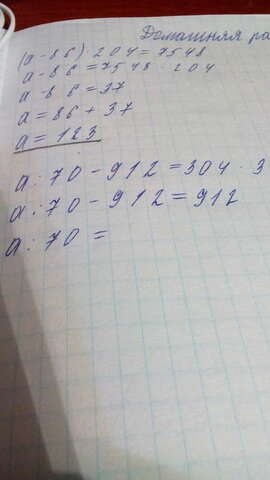 Домашняя ра
(а - 86) · 204 = 7548
а - 86 = 7548 : 204
а - 86 = 37
а = 86 + 37
а = 123
а : 70 - 912 = 304 · 3
а : 70 - 912 = 912
а : 70 =